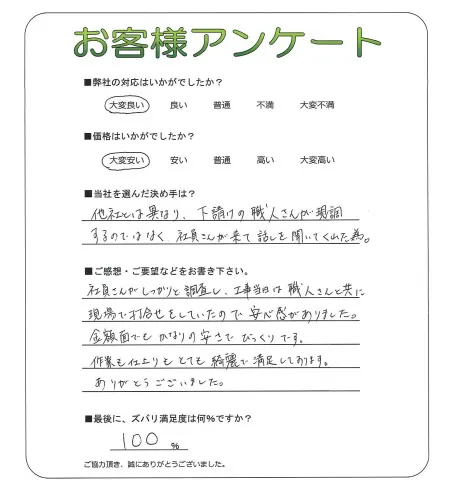 お客様アンケート
■弊社の対応はいかがでしたか？
大変良い 良い 普通 不満 大変不満
■価格はいかがでしたか？
大変安い 安い 普通 高い 大変高い
■当社を選んだ決め手は？
他社とは異なり、下請けの職人さんが現調
するのではなく社員さんが来て話しを聞いてくれた為。
■ご感想・ご要望などをお書き下さい。
社員さんがしっかりと調査し、工事当日は職人さんと共に
現場で打合せをしていたので安心感がありました。
金額面でもかなりの安さでびっくりです。
作業も仕上りもとても綺麗で満足しております。
ありがとうございました。
■最後に、ズバリ満足度は何%ですか？
100 %
ご協力頂き、誠にありがとうございました。